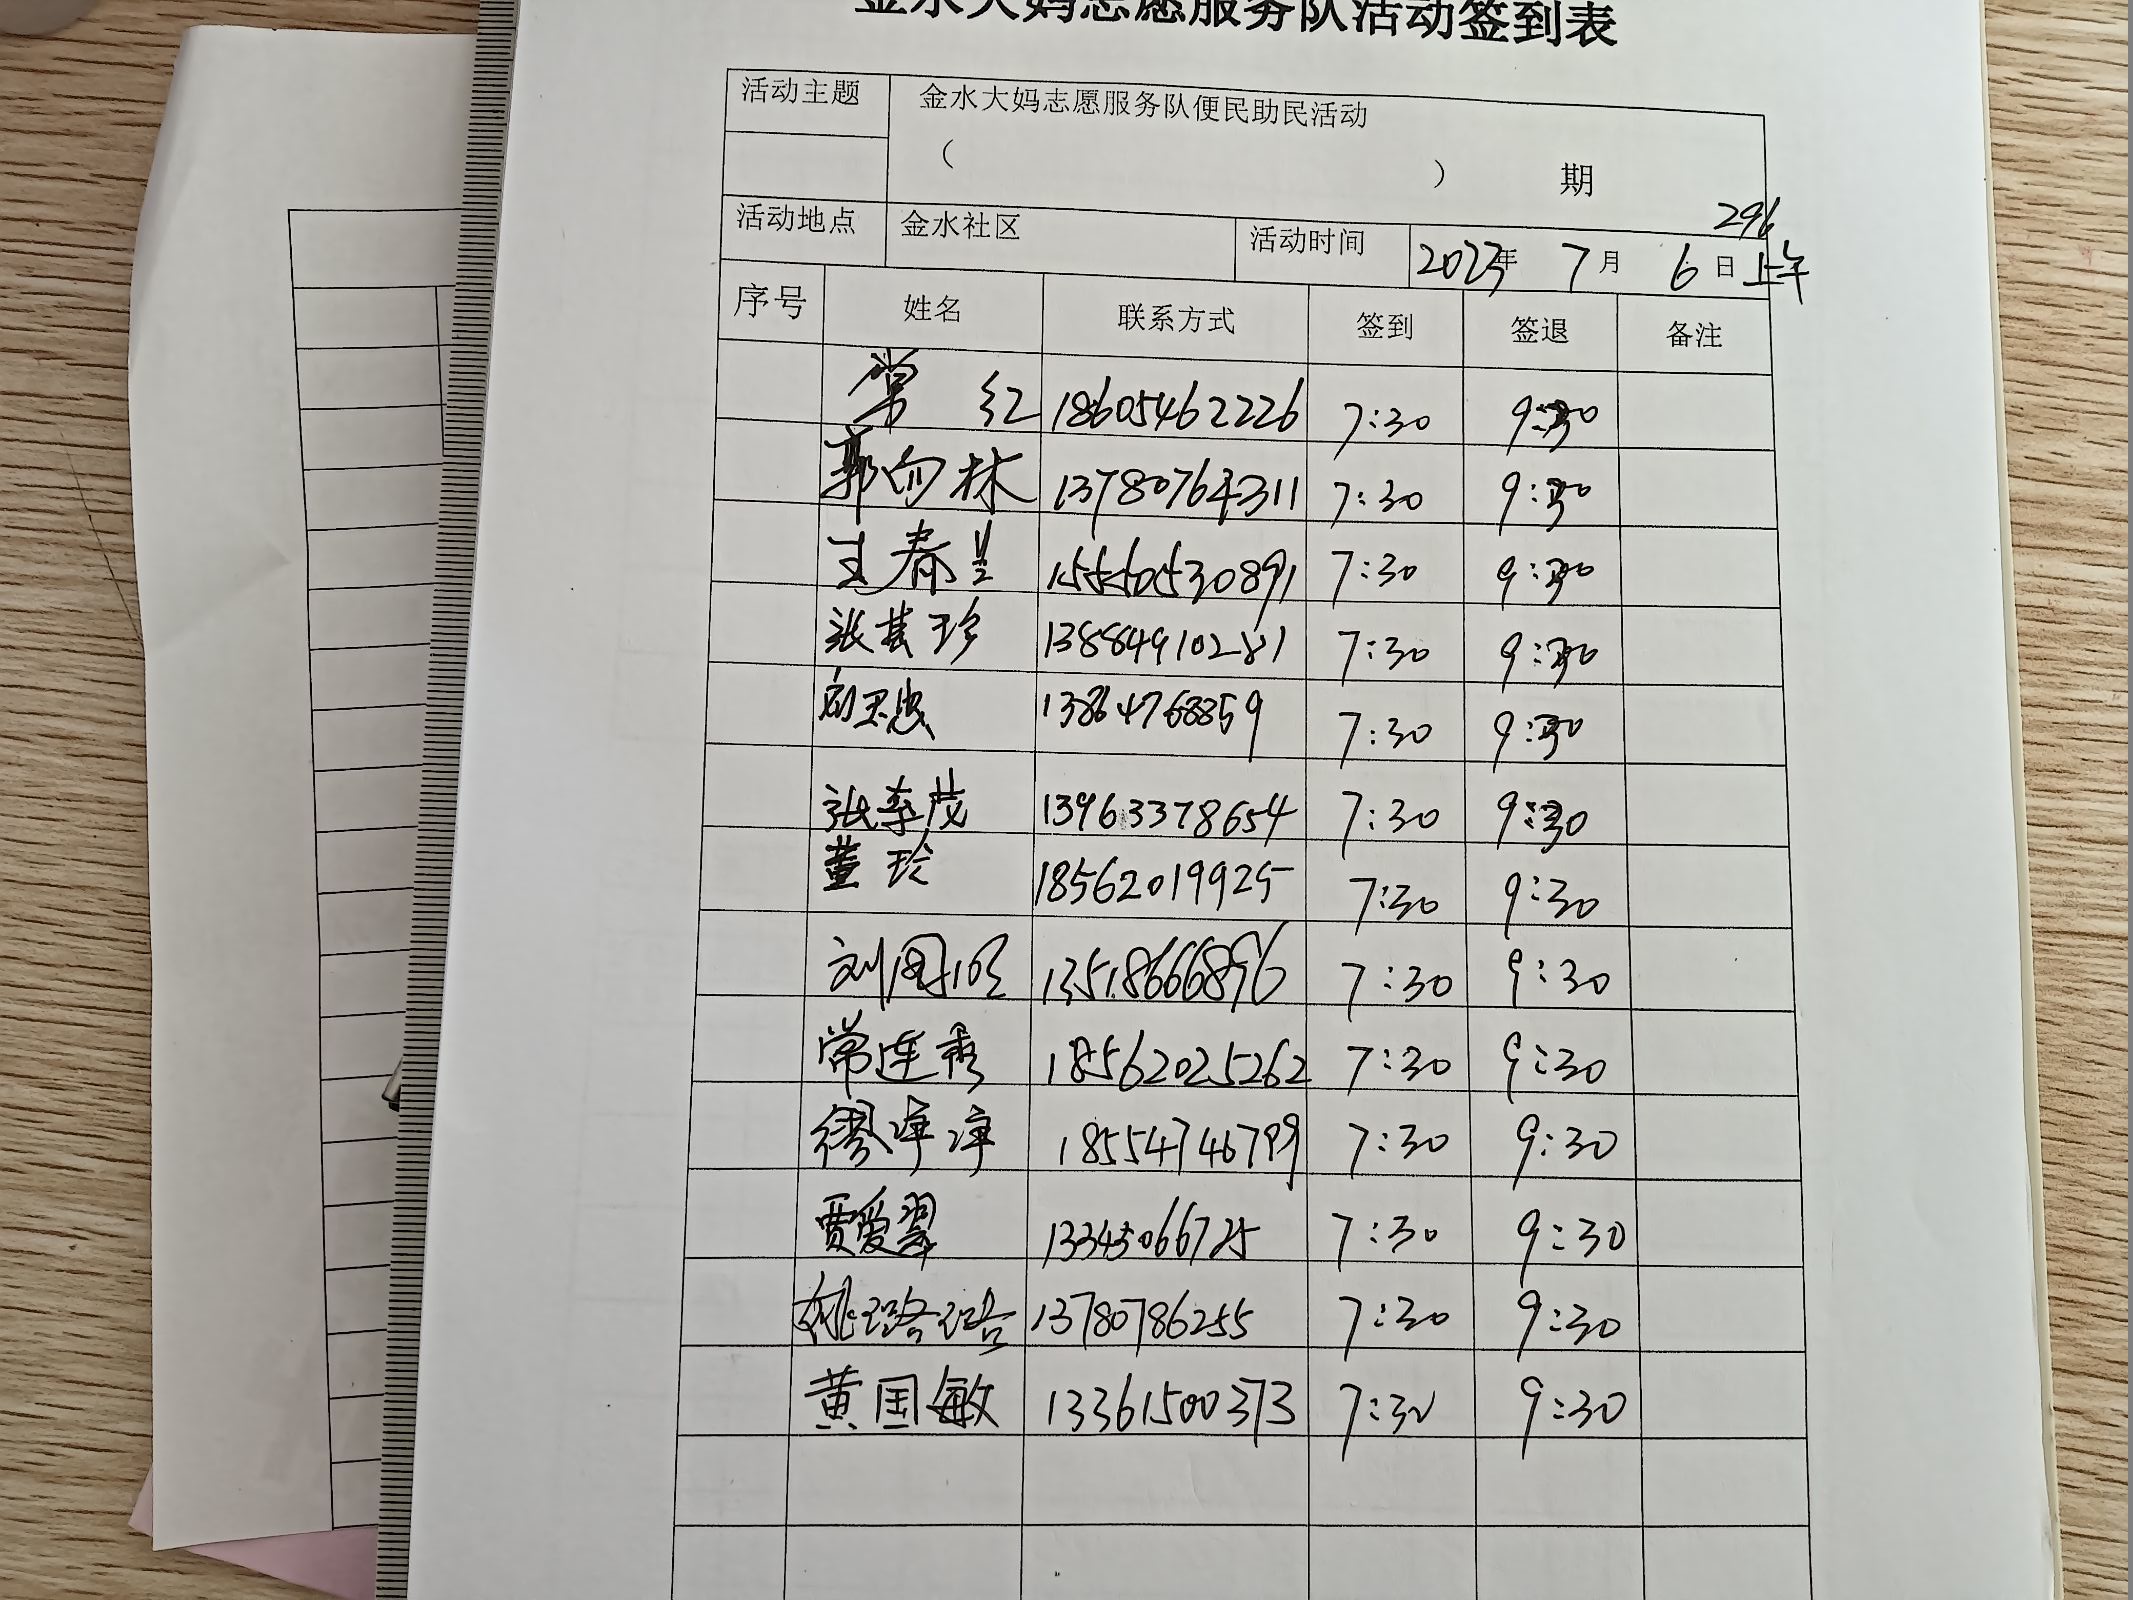 金水大妈志愿服务队活动签到表
活动主题 金水大妈志愿服务队便民助民活动
（ ） 期
296
活动地点 金水社区 活动时间 2023年 7月 6日上午
序号 姓名 联系方式 签到 签退 备注
常 红 18605462226 7:30 9:30
郭向林 13780764311 7:30 9:30
王春兰 15550530891 7:30 9:30
张其珍 13884910281 7:30 9:30
13864768859 7:30 9:30
张奉茂 13963378654 7:30 9:30
董玲 18562019925 7:30 9:30
刘国 13518666896 7:30 9:30
常连秀 18562025262 7:30 9:30
缪萍萍 18554746799 7:30 9:30
贾爱翠 13345066725 7:30 9:30
姚璐璐 13780786255 7:30 9:30
黄国敏 13361500373 7:30 9:30